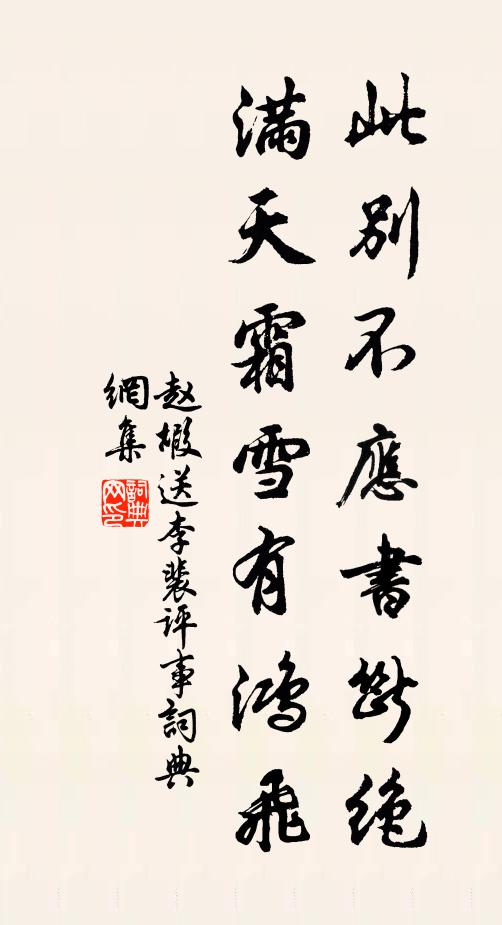 此別不應書斷絕
滿天霜雪有鴻飛
赵嘏送李裴评事詞典
網集
詞典網印